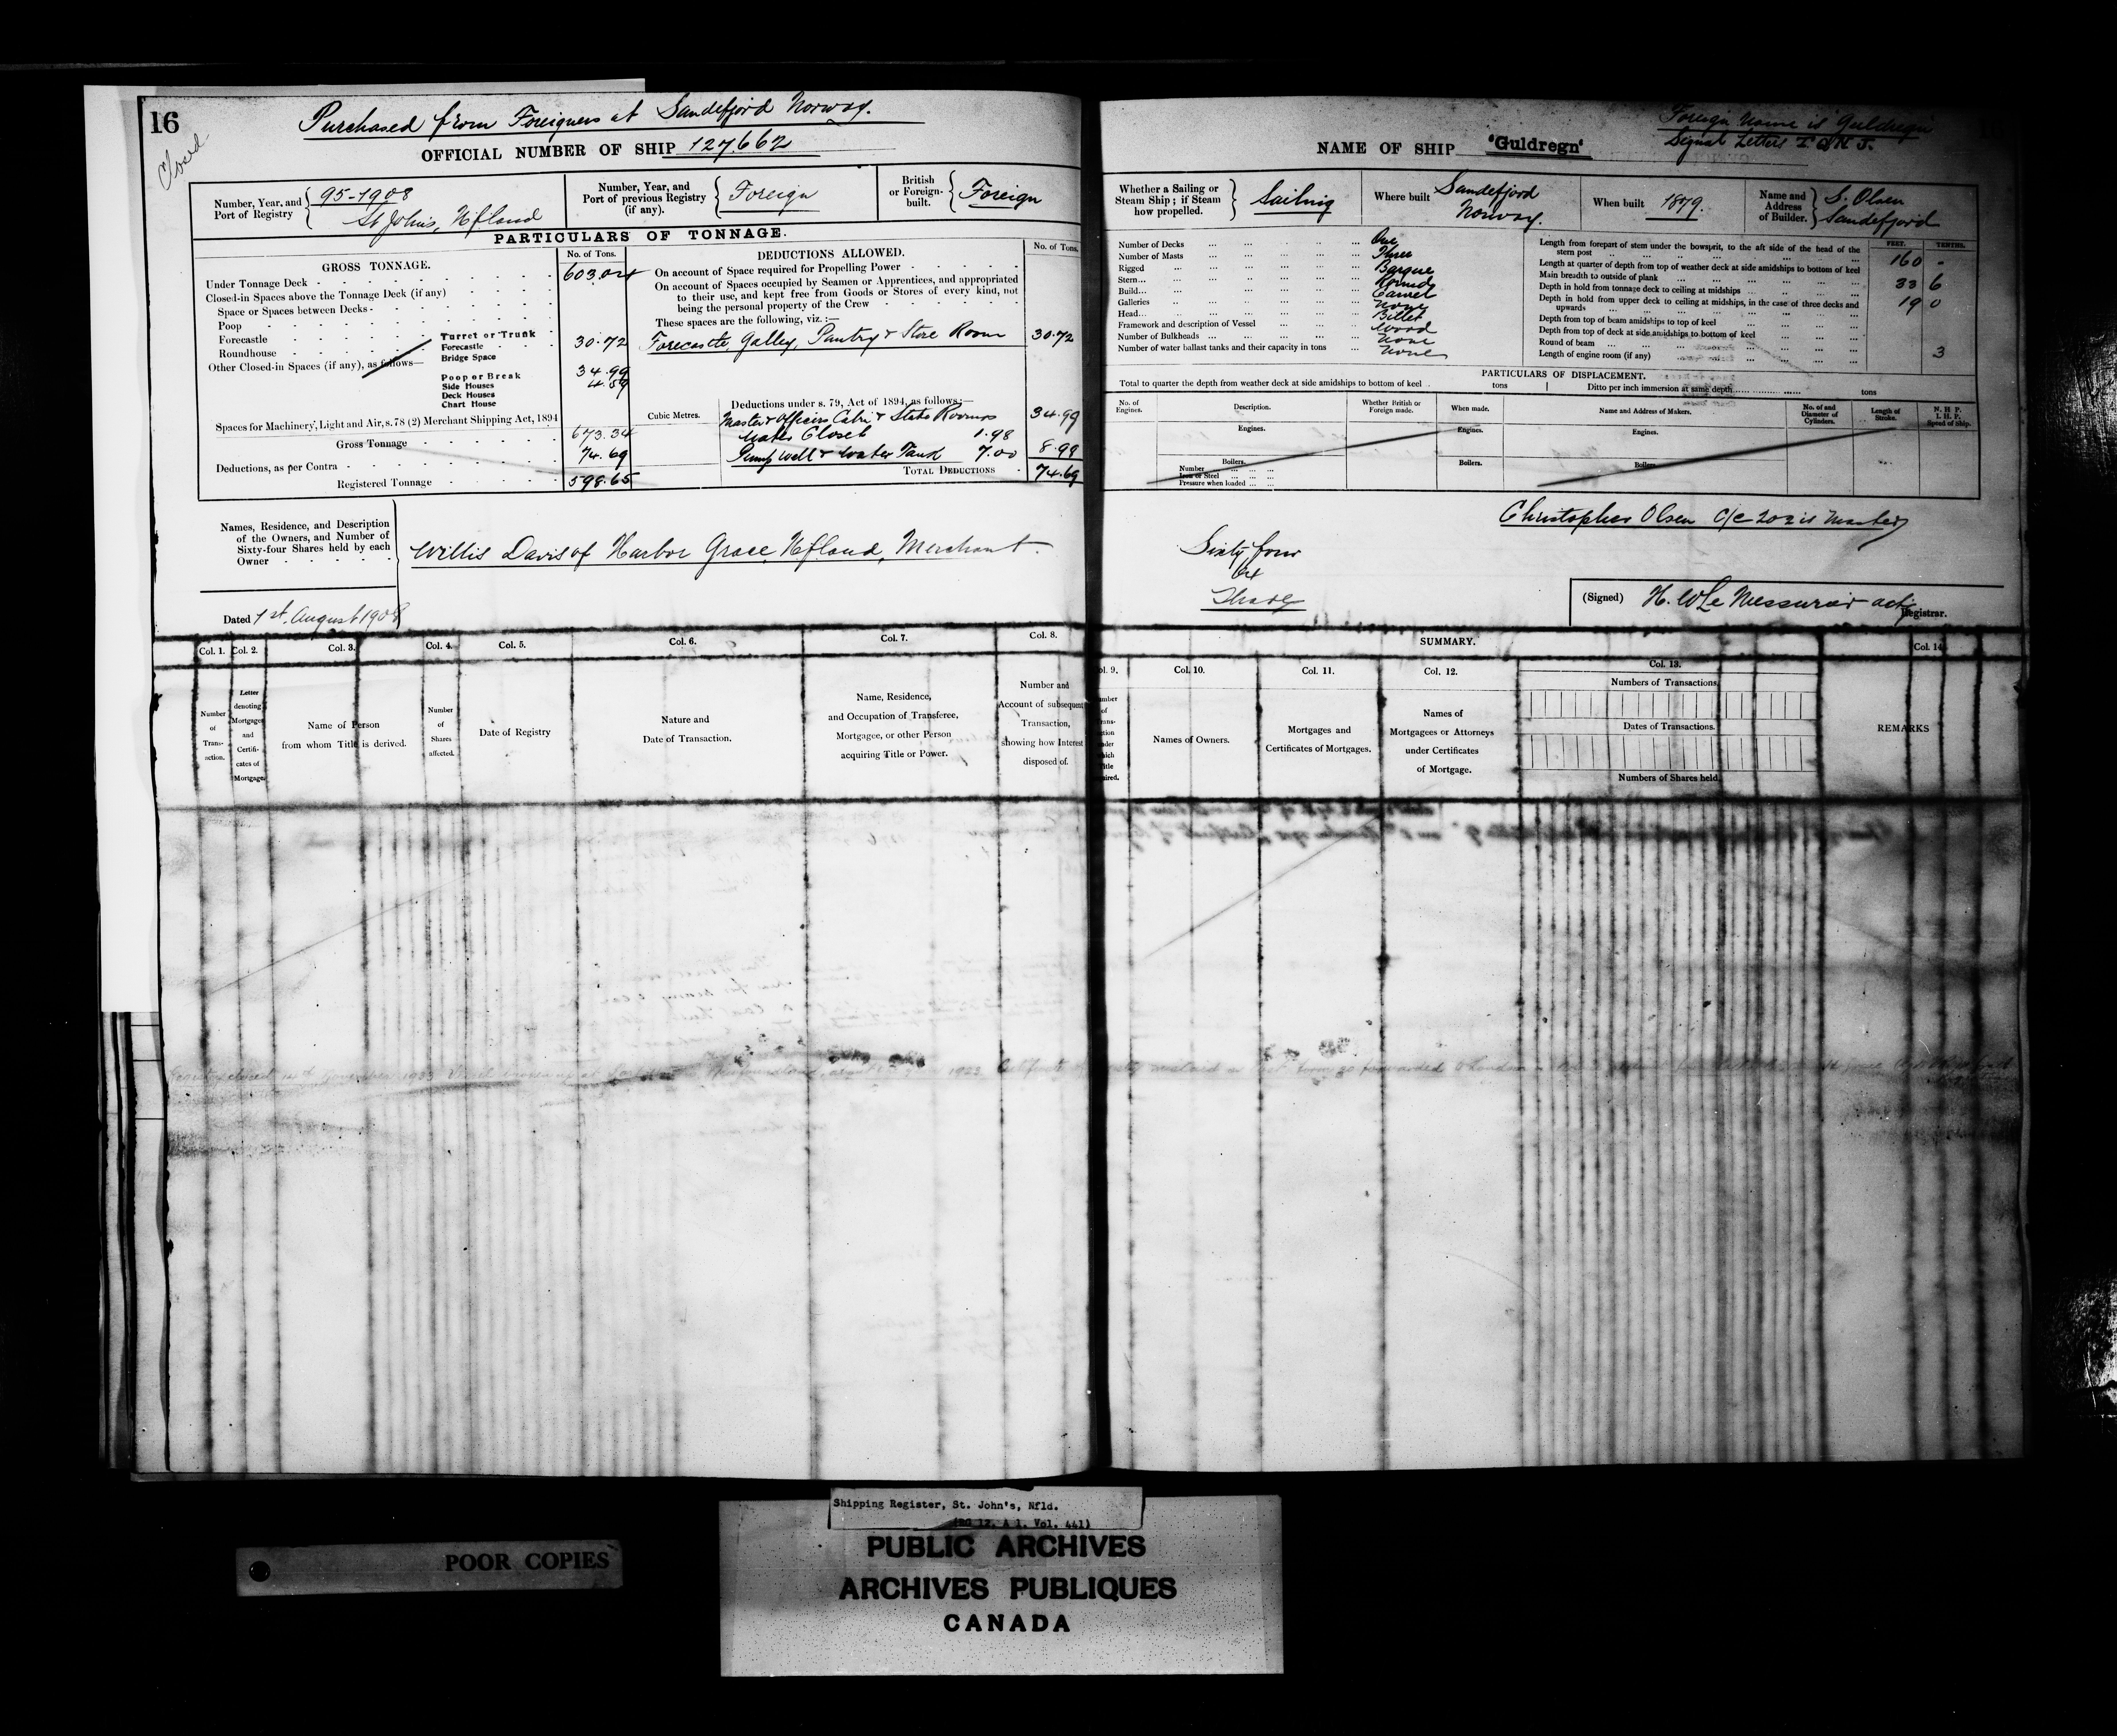 16
Closed
Purchased from Foreigners at Sandefjord Norway.
OFFICIAL NUMBER OF SHIP 127.662
Number, Year, and Port of Registry
95-1908
St John's, Nfland
Number, Year, and Port of previous Registry (if any).
Foreign
British or Foreign-built.
Foreign
PARTICULARS OF TONNAGE.
GROSS TONNAGE.
No. of Tons.
Under Tonnage Deck 603.04
Closed-in Spaces above the Tonnage Deck (if any)
Space or Spaces between Decks
Poop
Forecastle
Roundhouse
Other Closed-in Spaces (if any), as follows—
Turret or Trunk
Forecastle 30.72
Bridge Space
Poop or Break 34.99
Side Houses 4.59
Deck Houses
Chart House
Spaces for Machinery, Light and Air, s.78 (2) Merchant Shipping Act, 1894
Gross Tonnage 673.34
Deductions, as per Contra 74.69
Registered Tonnage 598.65
DEDUCTIONS ALLOWED.
No. of Tons.
On account of Space required for Propelling Power
On account of Spaces occupied by Seamen or Apprentices, and appropriated
to their use, and kept free from Goods or Stores of every kind, not
being the personal property of the Crew
These spaces are the following, viz.:—
Forecastle, Galley, Pantry & Store Room 30.72
Deductions under s. 79, Act of 1894, as follows:—
Cubic Metres.
Master & Officers Cabin & State Rooms 34.99
Water Closet 1.98
Pump Well & Water Tank 7.00 8.98
TOTAL DEDUCTIONS 74.69
Names, Residence, and Description
of the Owners, and Number of
Sixty-four Shares held by each
Owner
Willis Davis of Harbor Grace, Nfland, Merchant
Dated 1st August 1908
Col. 1.
Number of Transaction.
Col. 2.
Letter denoting Mortgages and Certificates of Mortgage
Col. 3.
Name of Person
from whom Title is derived.
Col. 4.
Number of Shares affected.
Col. 5.
Date of Registry
Col. 6.
Nature and
Date of Transaction.
Col. 7.
Name, Residence,
and Occupation of Transferee,
Mortgagee, or other Person
acquiring Title or Power.
Col. 8.
Number and
Account of subsequent
Transaction,
showing how Interest
disposed of.
Foreign Name is Guldregn
Signal Letters
NAME OF SHIP "Guldregn"
Whether a Sailing or Steam Ship; if Steam how propelled.
Sailing
Where built
Sandefjord
Norway.
When built
1879.
Name and Address of Builder.
S. Olsen
Sandefjord
Number of Decks One
Number of Masts Three
Rigged Barque
Stern Round
Build Carvel
Galleries None
Head Billet
Framework and description of Vessel Wood
Number of Bulkheads None
Number of water ballast tanks and their capacity in tons None
FEET. TENTHS.
Length from forepart of stem under the bowsprit, to the aft side of the head of the
stern post 160 -
Length at quarter of depth from top of weather deck at side amidships to bottom of keel
Main breadth to outside of plank 33 6
Depth in hold from tonnage deck to ceiling at midships 19 0
Depth in hold from upper deck to ceiling at midships, in the case of three decks and
upwards
Depth from top of beam amidships to top of keel
Depth from top of deck at side amidships to bottom of keel
Round of beam 3
Length of engine room (if any)
PARTICULARS OF DISPLACEMENT.
Total to quarter the depth from weather deck at side amidships to bottom of keel tons
Ditto per inch immersion at same depth tons
No. of Engines.
Description.
Whether British or Foreign made.
When made.
Name and Address of Makers.
No. of and Diameter of Cylinders.
Length of Stroke.
N. H. P.
I. H. P.
Speed of Ship.
Engines.
Engines.
Engines.
Boilers.
Number
Iron or Steel
Pressure when loaded
Boilers.
Boilers.
Christopher Olsen
Sixty four
Shares
(Signed) H. W Le Messurier actg
Registrar.
SUMMARY.
Col. 9.
Col. 10.
Names of Owners.
Col. 11.
Mortgages and
Certificates of Mortgages.
Col. 12.
Names of
Mortgagees or Attorneys
under Certificates
of Mortgage.
Col. 13.
Numbers of Transactions.
Dates of Transactions.
Numbers of Shares held.
Col. 14
REMARKS
Shipping Register, St. John's, Nfld.
(RG 12, A 1, Vol. 441)
POOR COPIES
PUBLIC ARCHIVES
ARCHIVES PUBLIQUES
CANADA